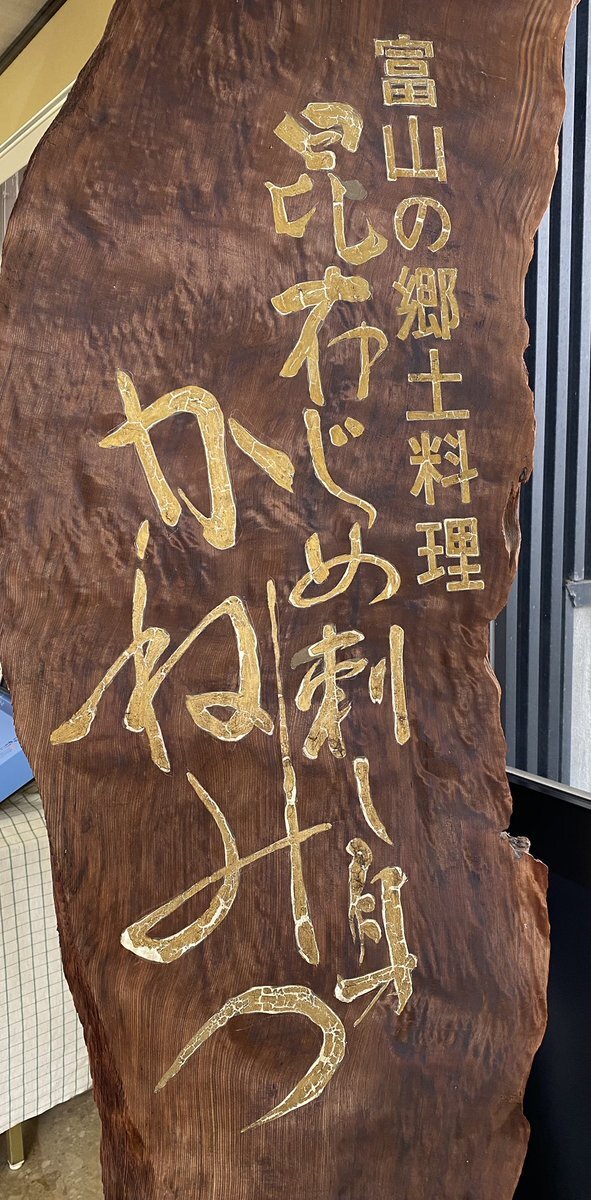 富山の郷土料理
昆布じめ刺し身
かねみつ